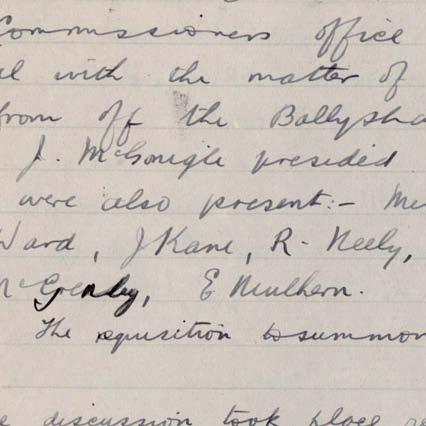 Commissioners office
with the matter of
from off the Ballysha
J. McGonigle presided
were also present:- Me
Ward, J Kane, R. Neely,
E Mulhern.
The requisition to summon
discussion took place